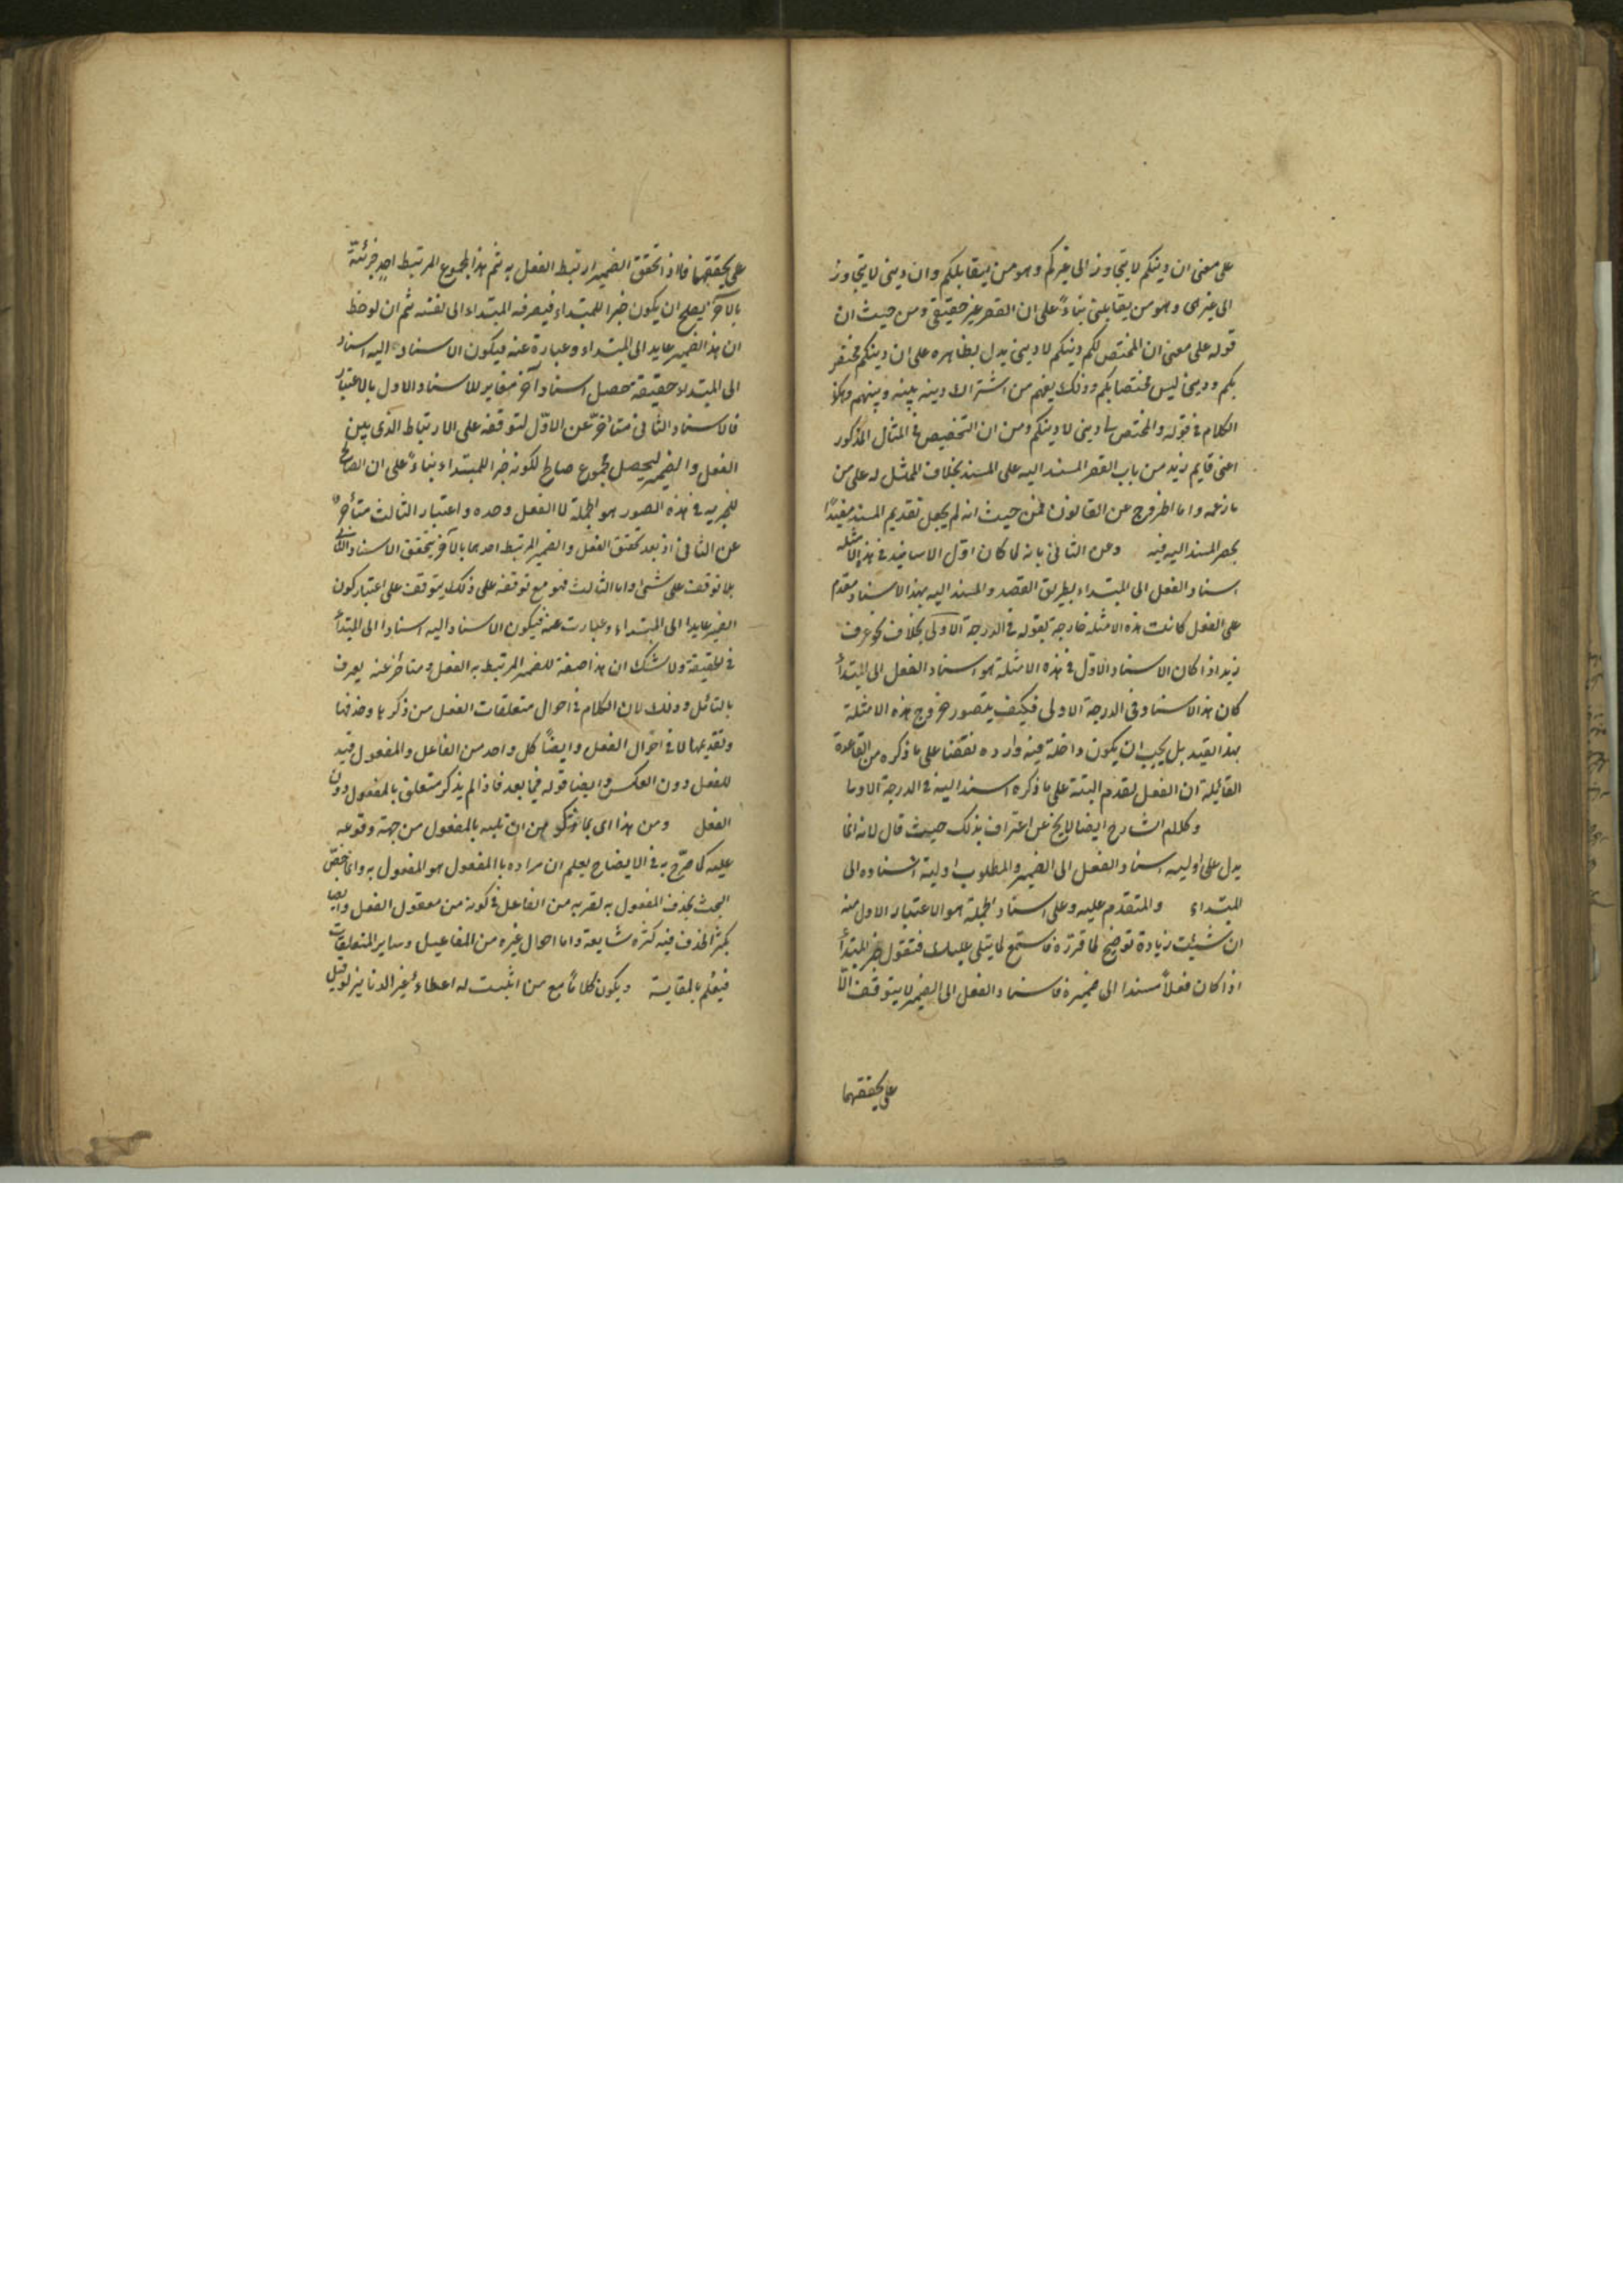 على معنى ان دينكم لا يتجاوز الى غيركم وهو من يقابلكم وان دينى لا يتجاوز
الى غيرى وهو من يقابلنى بناءً على ان القصر غير حقيقى ومن حيث ان
قوله على معنى ان المختص لكم دينكم لا دينى يدل بظاهره على ان دينكم مختص
بكم ودينى ليس مختصا بكم وذلك يفهم من اشتراك دينه بينه وبينهم وهكذا
الكلام فى قوله والمختص لى دينى لا دينكم ومن ان التخصيص فى المثال المذكور
اعنى قايم زيد من باب القصر المسند اليه على المسند بخلاف الممثل له على من
ما زعمه واما الخروج عن القانون فمن حيث انه لم يجعل تقديم المسند مفيدًا
بحصر المسند اليه فيه وعن الثانى بانه لما كان اوّل الاسانيد فى هذه الامثله
اسناد الفعل الى المبتداء بطريق القصد والمسند اليه بهذا الاسناد مقدم
على الفعل كانت هذه الامثلة خارجة بقوله فى الدرجة الاولى بخلاف نحو عرف
زيد اذا كان الاسناد الاوّل فى هذه الامثلة هو اسناد الفعل الى المبتدأ
كان هذا الاسناد فى الدرجة الاولى فكيف يتصور خروج هذه الامثلة
بهذا القيد بل يجب ان يكون داخلة فيه وارده نقضا على ما ذكره من القاعدة
القائلة ان الفعل يقدم البتة على ما ذكره اسند اليه فى الدرجة الاولى
وكلام الشارح ايضا لا يخ عن اعتراف بذلك حيث قال لانه انما
يدل على اولية اسناد الفعل الى الضمير والمطلوب اولية اسناده الى
المبتداء والمتقدم عليه وعلى اسناد الجملة هو الاعتبار الاول منه
ان شئت زيادة توضيح لما قررّه فاستمع لما يتلى عليك فنقول خبر المبتدأ
اذا كان فعلاً مسندا الى ضميره فاسناد الفعل الى الضمير لا يتوقف الّا
على تحققهما
على تحققهما فاذا تحقق الضمير ارتبط الفعل به ثم هذا المجموع المرتبط احد جزئيه
بالاخر يصلح ان يكون خبرا للمبتداء فيصرفه المبتداء الى نفسه ثم ان لوحظ
ان هذا الضمير عايد الى المبتداء وعبارة عنه فيكون الاسناد اليه اسناد
الى المبتداء حقيقة حصل اسناد آخر مغاير للاسناد الاول بالاعتبار
فالاسناد الثانى متأخر عن الاوّل لتوقفه على الارتباط الذى بين
الفعل والضمير ليحصل مجموع صالح لكونه خبرا للمبتداء بناءً على ان الصالح
للخبرية فى هذه الصور هو الجملة لا الفعل وحده واعتبار الثالث متأخر
عن الثانى اذ بعد تحقق الفعل والضمير المرتبط احدهما بالآخر يتحقق الاسناد الثانى
بلا توقف على شئ واما الثالث فهو مع توقفه على ذلك يتوقف على اعتبار كون
الضمير عايدا الى المبتداء وعبارت عنه فيكون الاسناد اليه اسنادا الى المبتدأ
فى الحقيقة ولا شك ان هذا صفة للضمير المرتبط به الفعل ومتاخر عنه يعرف
بالتائل وذلك لان الكلام فى احوال متعلقات الفعل من ذكرها وحذفها
وتقديمها لا فى احوال الفعل وايضاً كل واحد من الفاعل والمفعول قيد
للفعل دون العكس وايضا قوله فيما بعد فاذا لم يذكر متعلق بالمفعول دون
الفعل ومن هذا اى مما من ان تلبسه بالمفعول من جهة وقوعه
عليه كما صرّح به فى الايضاح يعلم ان مراده بالمفعول هو المفعول به وانما خصّ
البحث بحذف المفعول به لقربه من الفاعل فى كونه من معقول الفعل وايضا
يكثر الحذف فيه كثره شايعة واما احوال غيره من المفاعيل وساير المتعلقات
فيعلم بالمقايسة ويكون كلاماً مع من اثبت له اعطاء غير الدنانير لو قيل